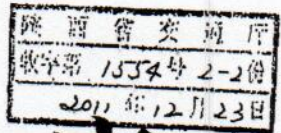 陕西省交通厅
收字第 1554号 2-2份
2011年12月23日